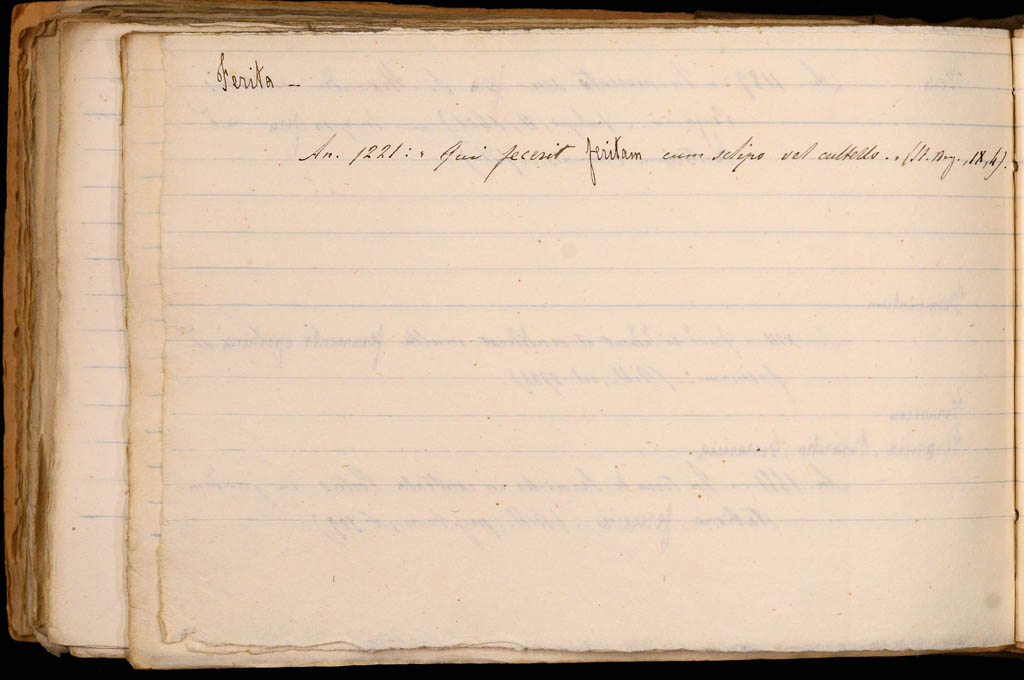 Ferita –
An. 1221: « Qui fecerit feritam cum schipo vel cultello. » (St. Rag., IX, 4).